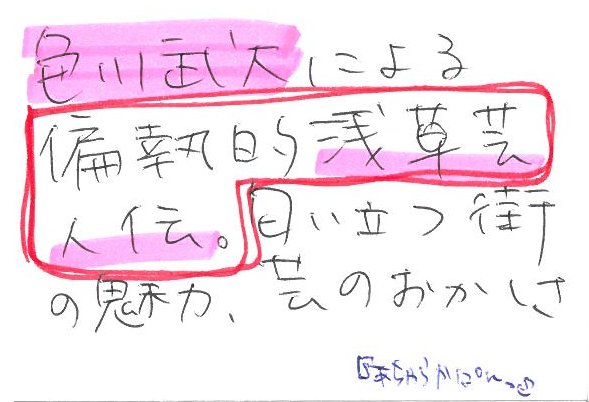 色川武大による
偏執的浅草芸
人伝。匂い立つ街
の魅力、芸のおかしさ
『あちゃらかぱいッ』